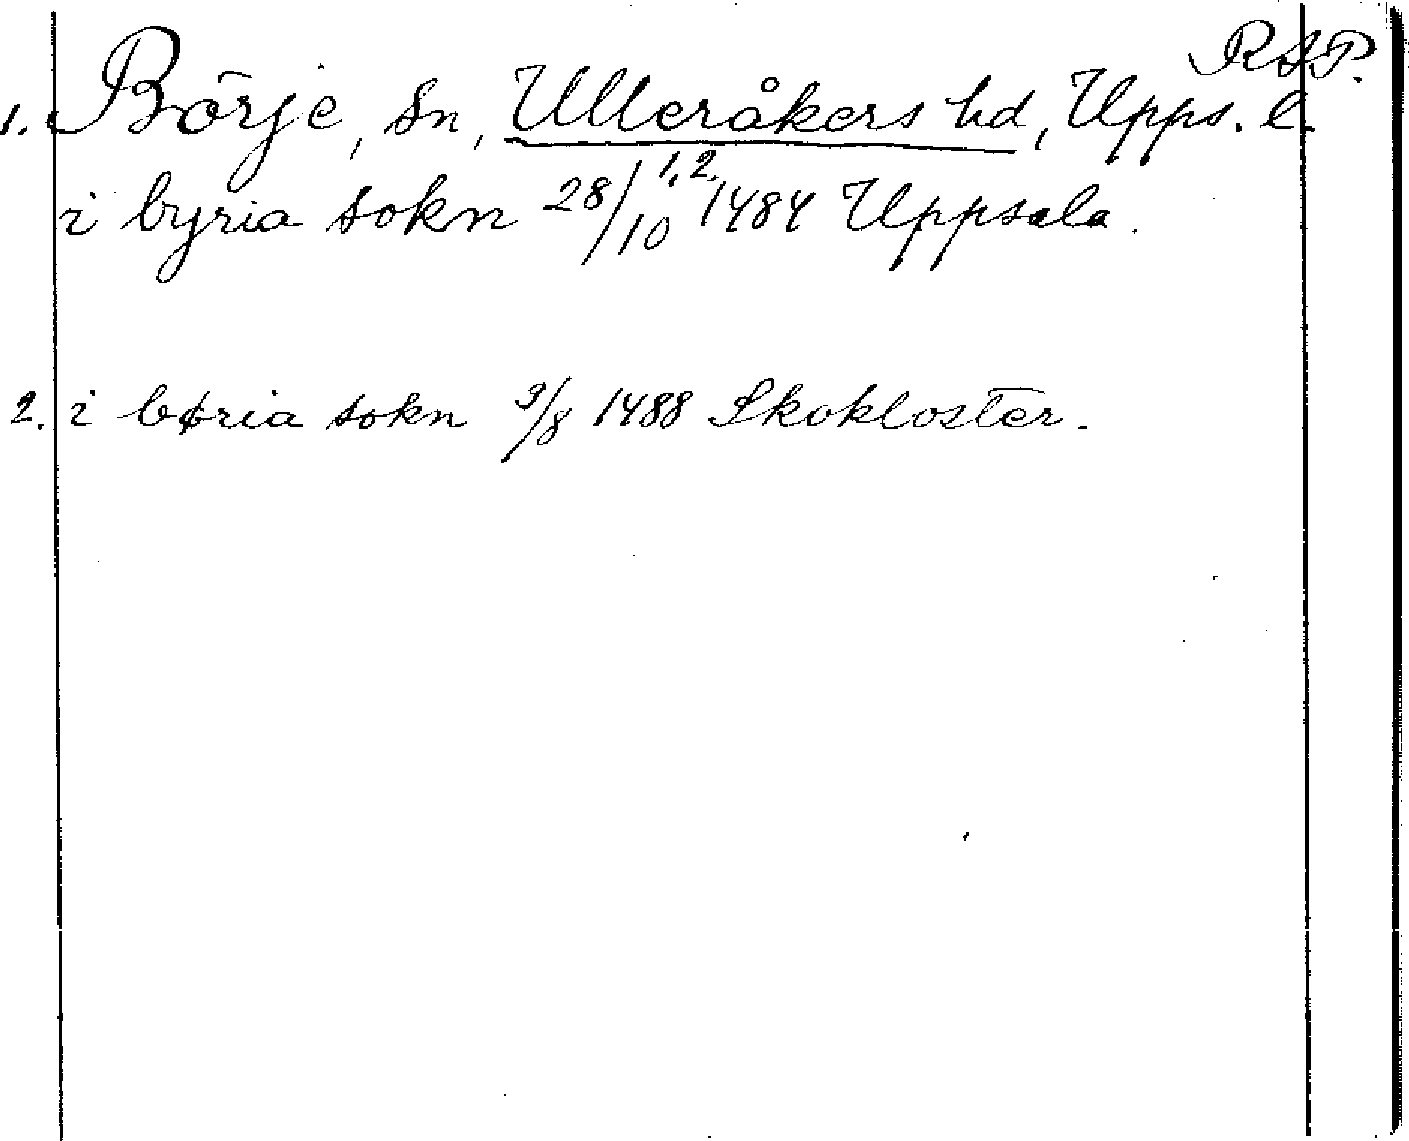 RAP.
1. Börje, sn, Ulleråkers hd, Upps. l.
1, 2.
i byria sokn 28/10 1484 Uppsala.
2. i børia sokn 9/8 1488 Skokloster.